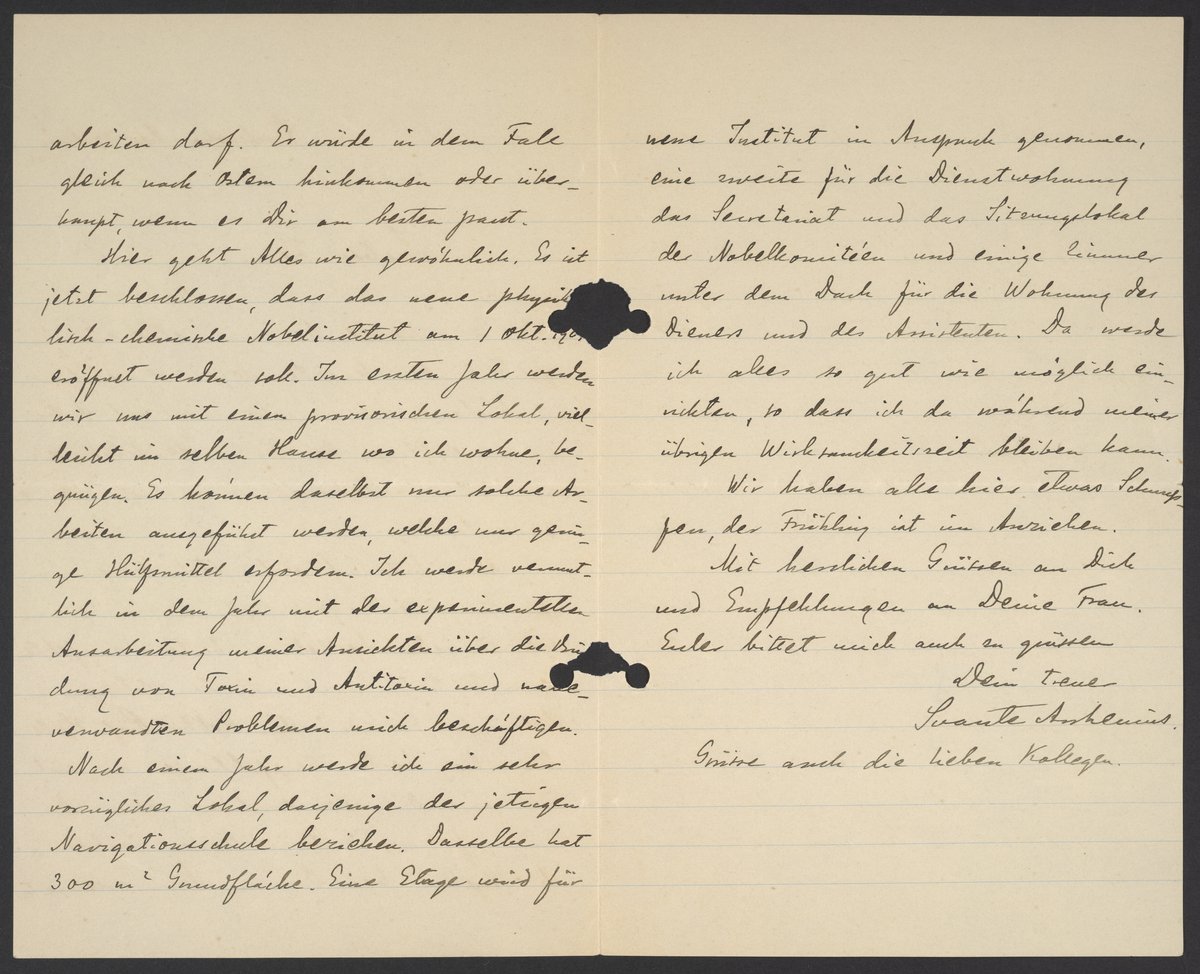 arbeiten darf. Er würde in dem Fale
gleich nach Ostern hinkommen oder über-
haupt, wenn es Dir am besten passt.
Hier geht Alles wie gewöhnlich. Es ist
jetzt beschlossen, dass das neue physika
lisch-chemische Nobelinstitut am 1 Okt.
eröffnet werden soll. Im ersten Jahr werden
wir uns mit einem provisorischen Lokal, viel-
leicht im selben Hause wo ich wohne, be-
gnügen. Es können daselbst nur solche Ar-
beiten ausgeführt werden, welche nur gerin-
ge Hülfsmittel erfordern. Ich werde vermut-
lich in dem Jahr mit der experimentellen
Ausarbeitung meiner Ansichten über die Bin
dung von Toxin und Antitoxin und nahe-
verwandten Problemen mich beschäftigen.
Nach einem Jahr werde ich ein sehr
vorzügliches Lokal, dasjenige der jetzigen
Navigationsschule beziehen. Dasselbe hat
300 m² Grundfläche. Eine Etage wird für
neue Institut in Anspruch genommen,
eine zweite für die Dienstwohnung
das Secretariat und das Sitzungslokal
der Nobelkomitéen und einige Zimmer
unter dem Dach für die Wohnung des
Dieners und des Assistenten. Da werde
ich alles so gut wie möglich ein-
richten, so dass ich da während meiner
übrigen Wirksamkeitszeit bleiben kann.
Wir haben alle hier etwas Schnup-
fen, der Frühling ist im Anziehen.
Mit herzlichen Grüssen an Dich
und Empfehlungen an Deine Frau.
Euler bittet mich auch zu grüssen
Dein treuer
Svante Arrhenius.
Grüsse auch die lieben Kollegen.